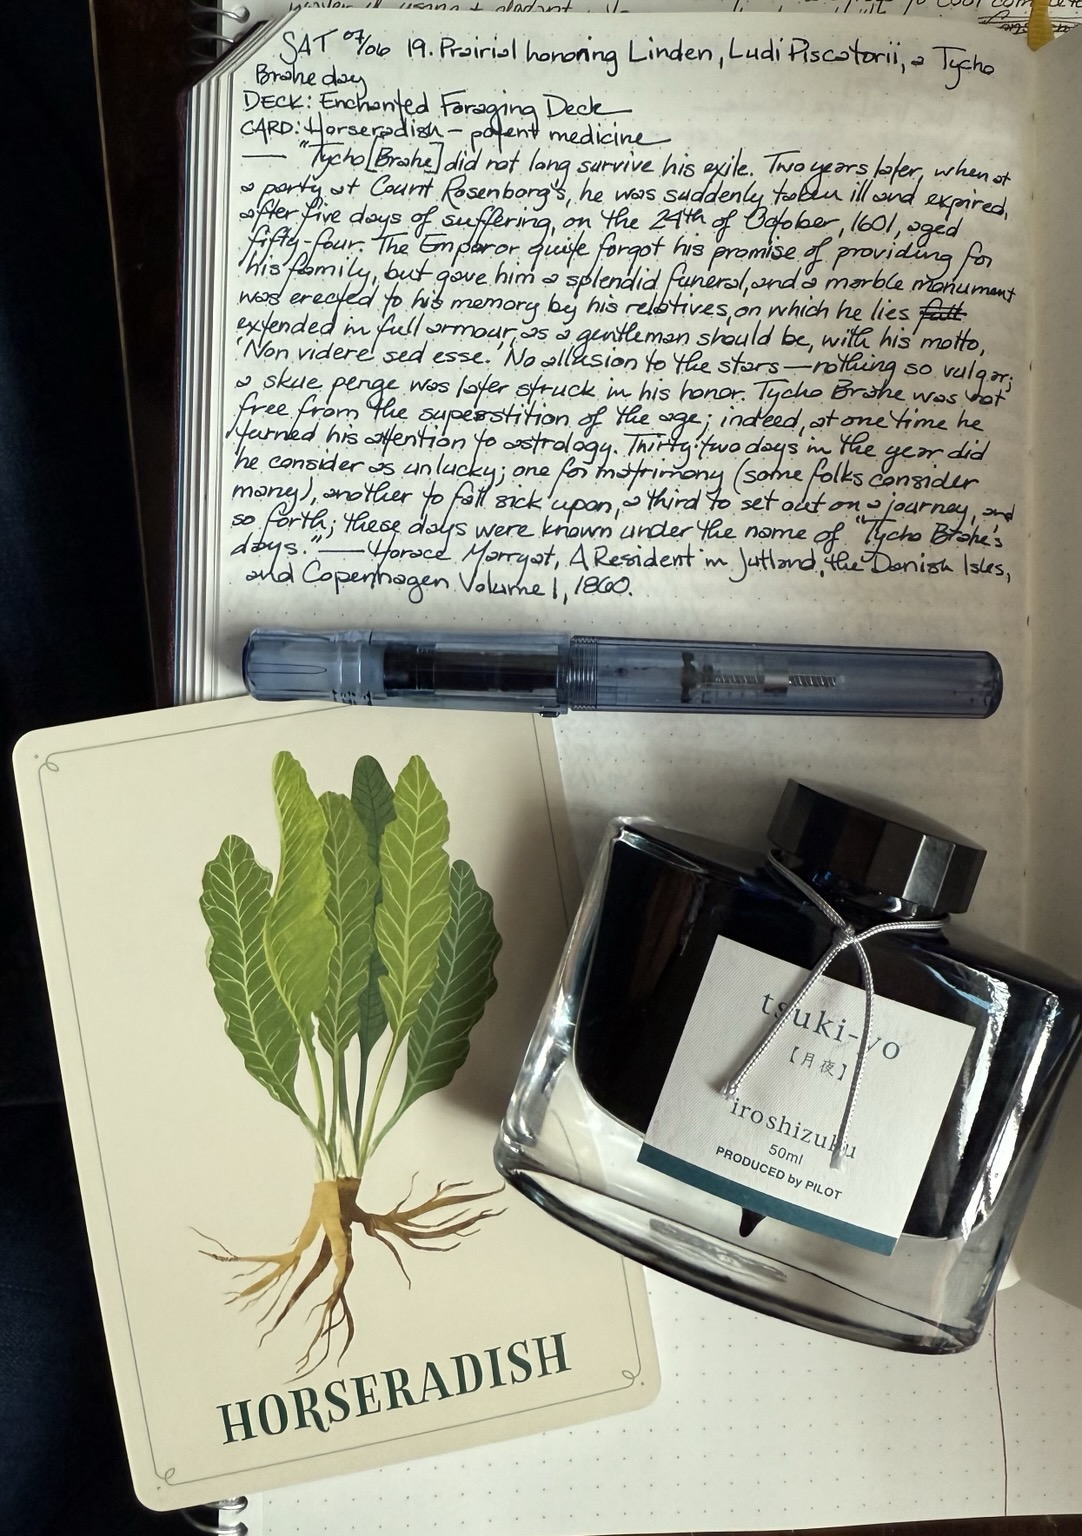 SAT 07/06 19. Prairial honoring Linden, Ludi Piscatorii, a Tycho
Brahe day
DECK: Enchanted Foraging Deck
CARD: Horseradish – potent medicine
— "Tycho [Brahe] did not long survive his exile. Two years later, when at
a party at Count Rosenborg's, he was suddenly taken ill and expired,
after five days of suffering, on the 24th of October, 1601, aged
fifty-four. The Emperor quite forgot his promise of providing for
his family, but gave him a splendid funeral, and a marble monument
was erected to his memory by his relatives, on which he lies
extended in full armour, as a gentleman should be, with his motto,
'Non videre sed esse.' No allusion to the stars — nothing so vulgar;
a skue penge was later struck in his honor. Tycho Brahe was not
free from the superstition of the age; indeed, at one time he
turned his attention to astrology. Thirty-two days in the year did
he consider as unlucky; one for matrimony (some folks consider
many), another to fall sick upon, a third to set out on a journey, and
so forth; these days were known under the name of "Tycho Brahe's
days." — Horace Marryat, A Resident in Jutland, the Danish Isles,
and Copenhagen Volume 1, 1860.
tsuki-yo
【月夜】
iroshizuku
50ml
PRODUCED by PILOT
HORSERADISH